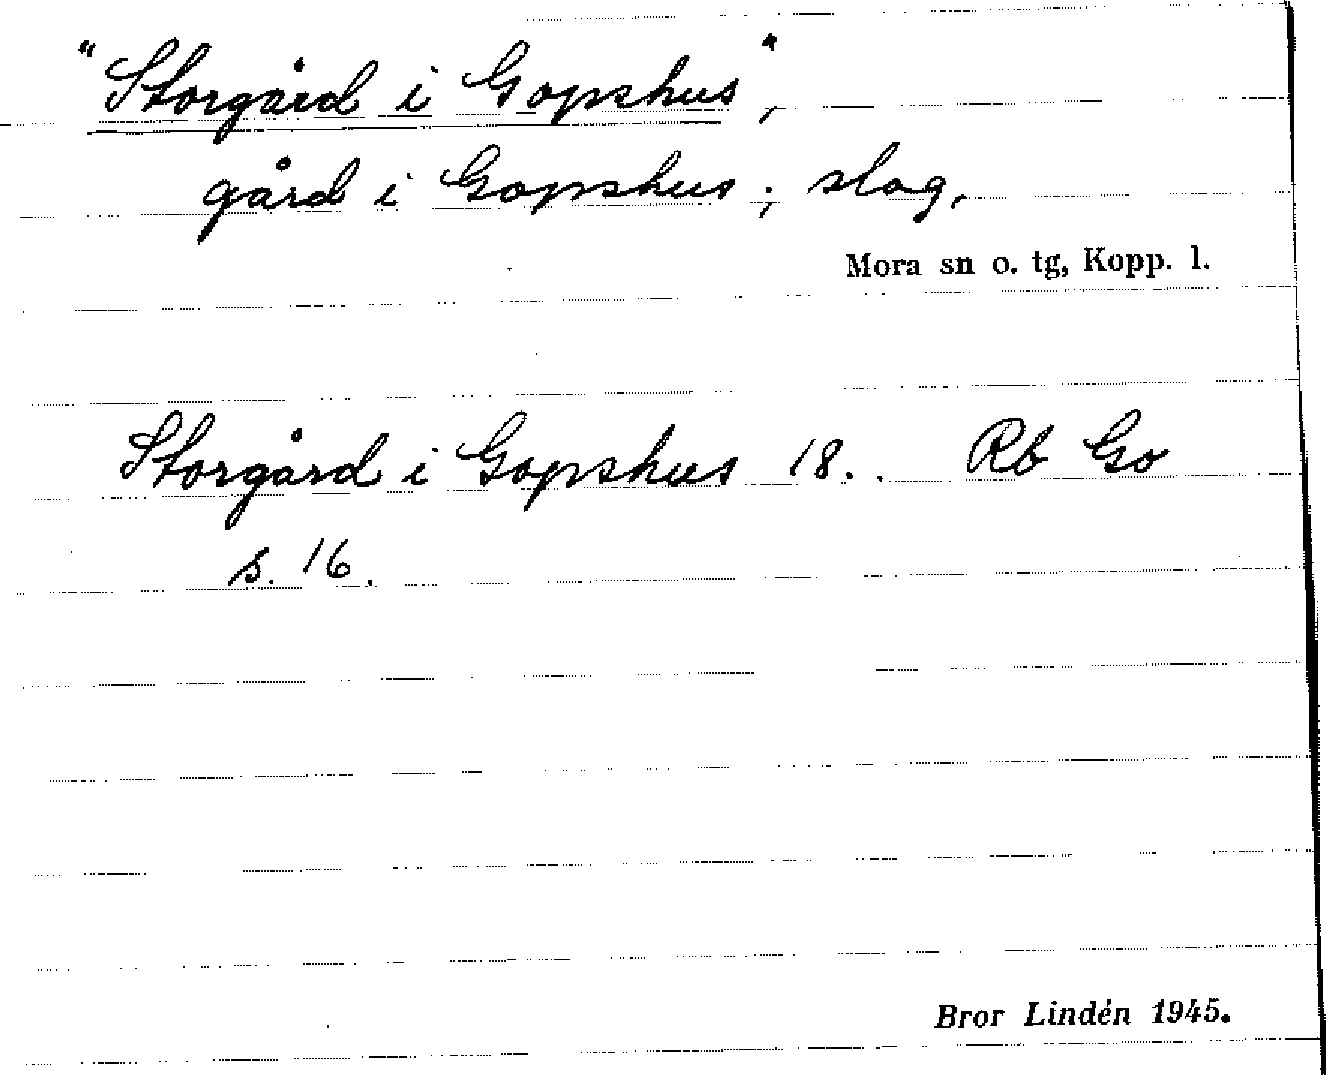 "Storgård i Gopshus",
gård i Gopshus; slog,
Mora sn o. tg, Kopp. l.
Storgård i Gopshus 18.. Rb Go
s. 16.
Bror Lindén 1945.